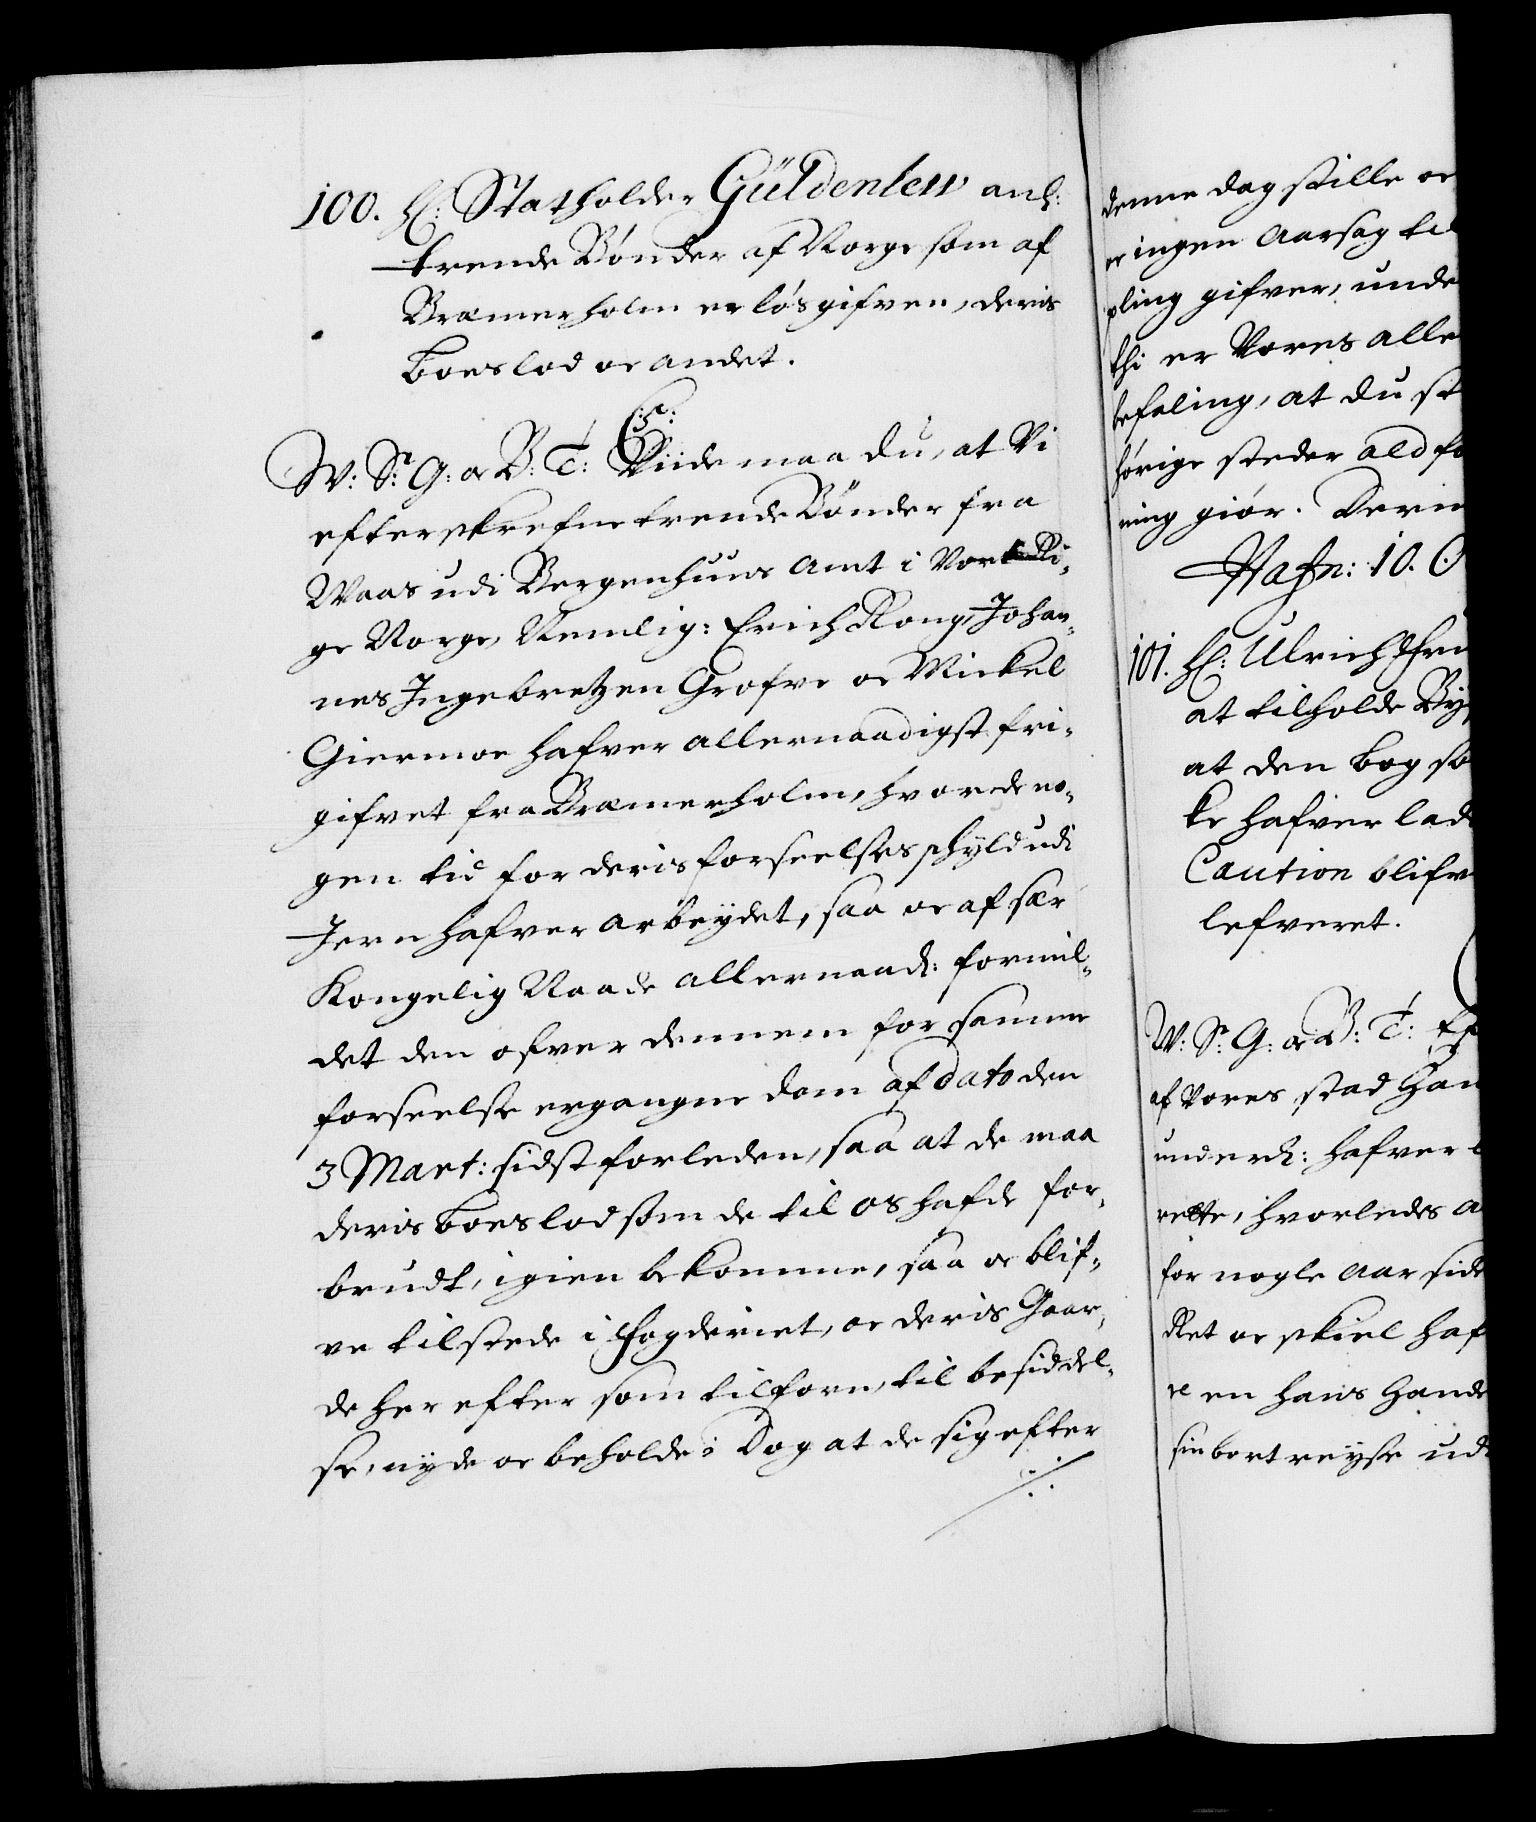 100. H: Statholder Güldenlew anl:
trende Bönder af Norge som af
Bremerholm er lösgifven, deris
boeslod oc andet.
C5
W: S: G: oc B: T: Viide maa du, at Vi
efterskrefne trende Bönder fra
Waas udi Bergenhuus Amt i Vort Ri-
ge Norge, Nemlig: Erich Rong, Johan-
nes Ingebretzen Grofve oc Mickel
Giermoe hafver allernaadigst fri-
gifvet fra Bremerholm, hvor de no-
gen tid for deris forseelses schyld udi
Jern hafver arbeydet, saa oc af sær
Kongelig Naade allernaad: formil-
det den ofver dennem for samme
forseelse ergangne dom af dato den
3 Mart: sidst forleden, saa at de maa
deris boeslod som de til os hafde for-
brudt, igien bekomme, saa oc blif-
ve tilstede i Fogderiet, oc deris Gaar-
de her efter som tilforn, til besiddel-
se, nyde oc beholde; Dog at de sig efter
denne dag stille oc
er ingen Aarsag til
pling gifver, unde
thi er Vores alle
befaling, at du st
hörige steder ald fo
ning giör. Derm
Hafn: 10. O
101. H: Ulrich Fri
at tilholde By
at den bog so
ke hafver lad
Caution blifv
lefveret.
W: S: G: oc B: T: Ef
af Vores stad Han
underd: hafver
rette, hvorledes a
for nogle Aar side
Ret oc skiel haf
re en hans hande
sin bortreyse ud